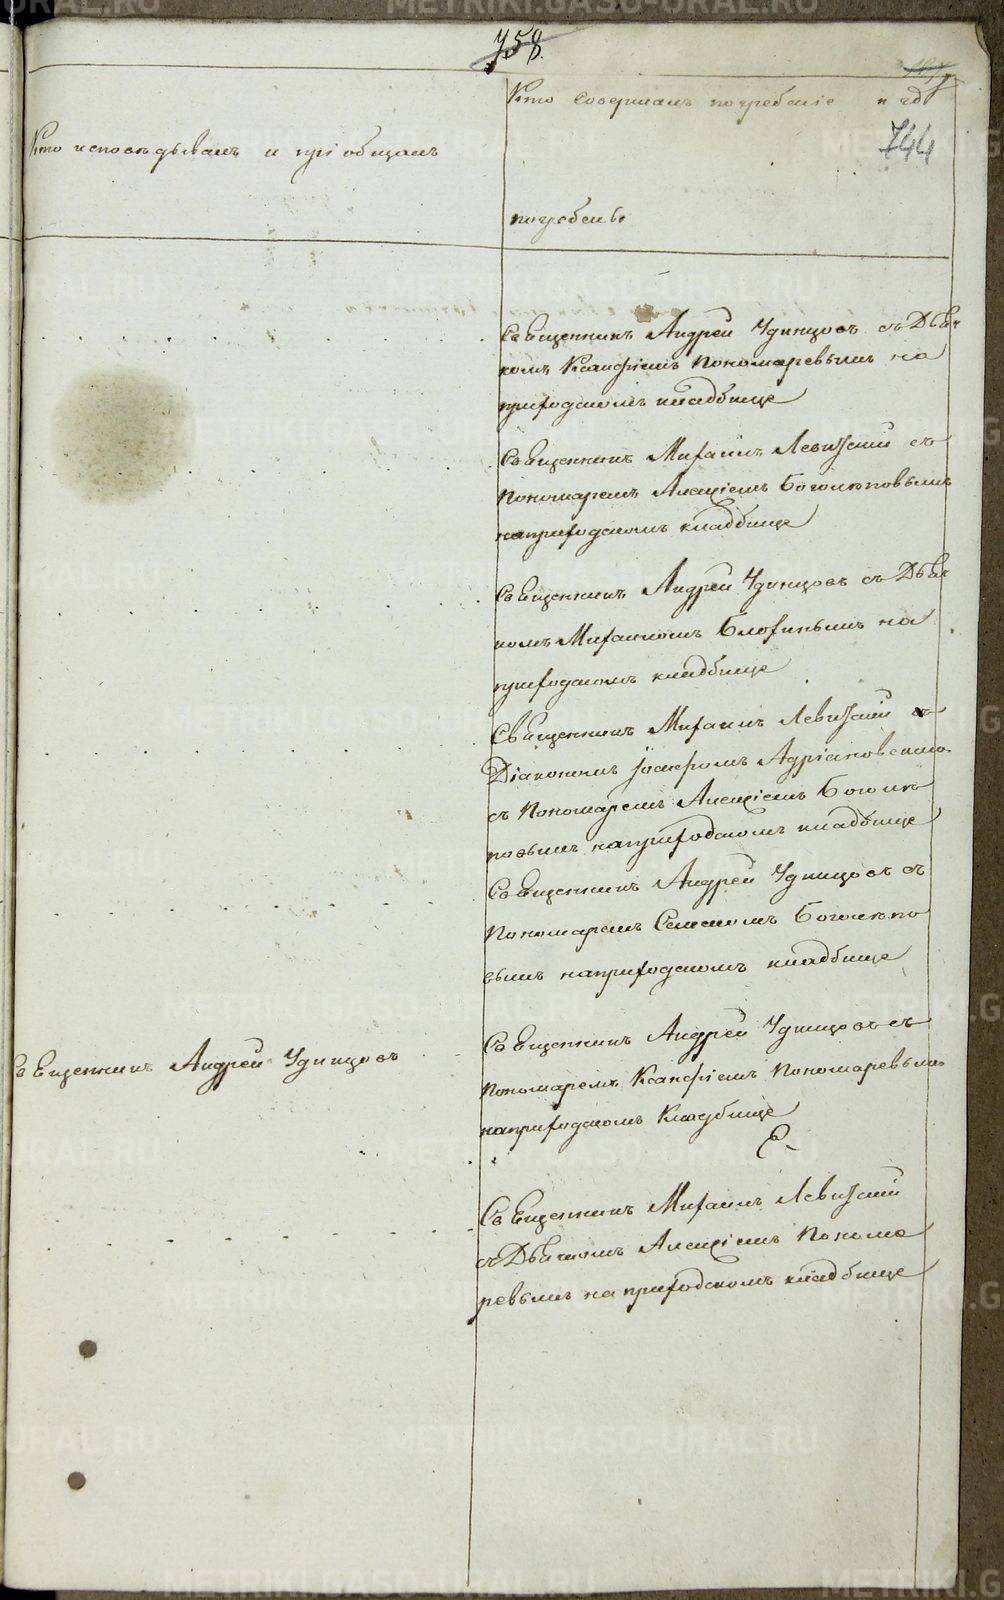 758
Кто совершалъ погребеніе и гдѣ
Кто исповѣдывалъ и пріобщалъ
744
погребены
Священникъ Андрей Удинцовъ съ Дьяч-
комъ Ксанфіемъ Пономаревымъ на
приходскомъ кладбище
Священникъ Михаилъ Левитскій съ
Пономаремъ Алексіемъ Боголюповымъ
на приходскомъ кладбище
Священникъ Андрей Удинцовъ съ Дьяч-
комъ Михаиломъ Блохинымъ на
приходскомъ кладбище
Священникъ Михаилъ Левитскій съ
Діакономъ Іосифомъ Адріановскимъ
съ Пономаремъ Алексіемъ Боголю-
повымъ на приходскомъ кладбище
Священникъ Андрей Удинцовъ съ
Пономаремъ Семеномъ Боголюпо
вымъ на приходскомъ кладбище
Священникъ Андрей Удинцовъ
Священникъ Андрей Удинцовъ съ
Пономаремъ Ксанфіемъ Пономаревымъ
на приходскомъ Кладбище
Священникъ Михаилъ Левитскій
съ Дьячкомъ Алексіемъ Понома
ревымъ на приходскомъ кладбище
METRIKI.GASO-URAL.RU